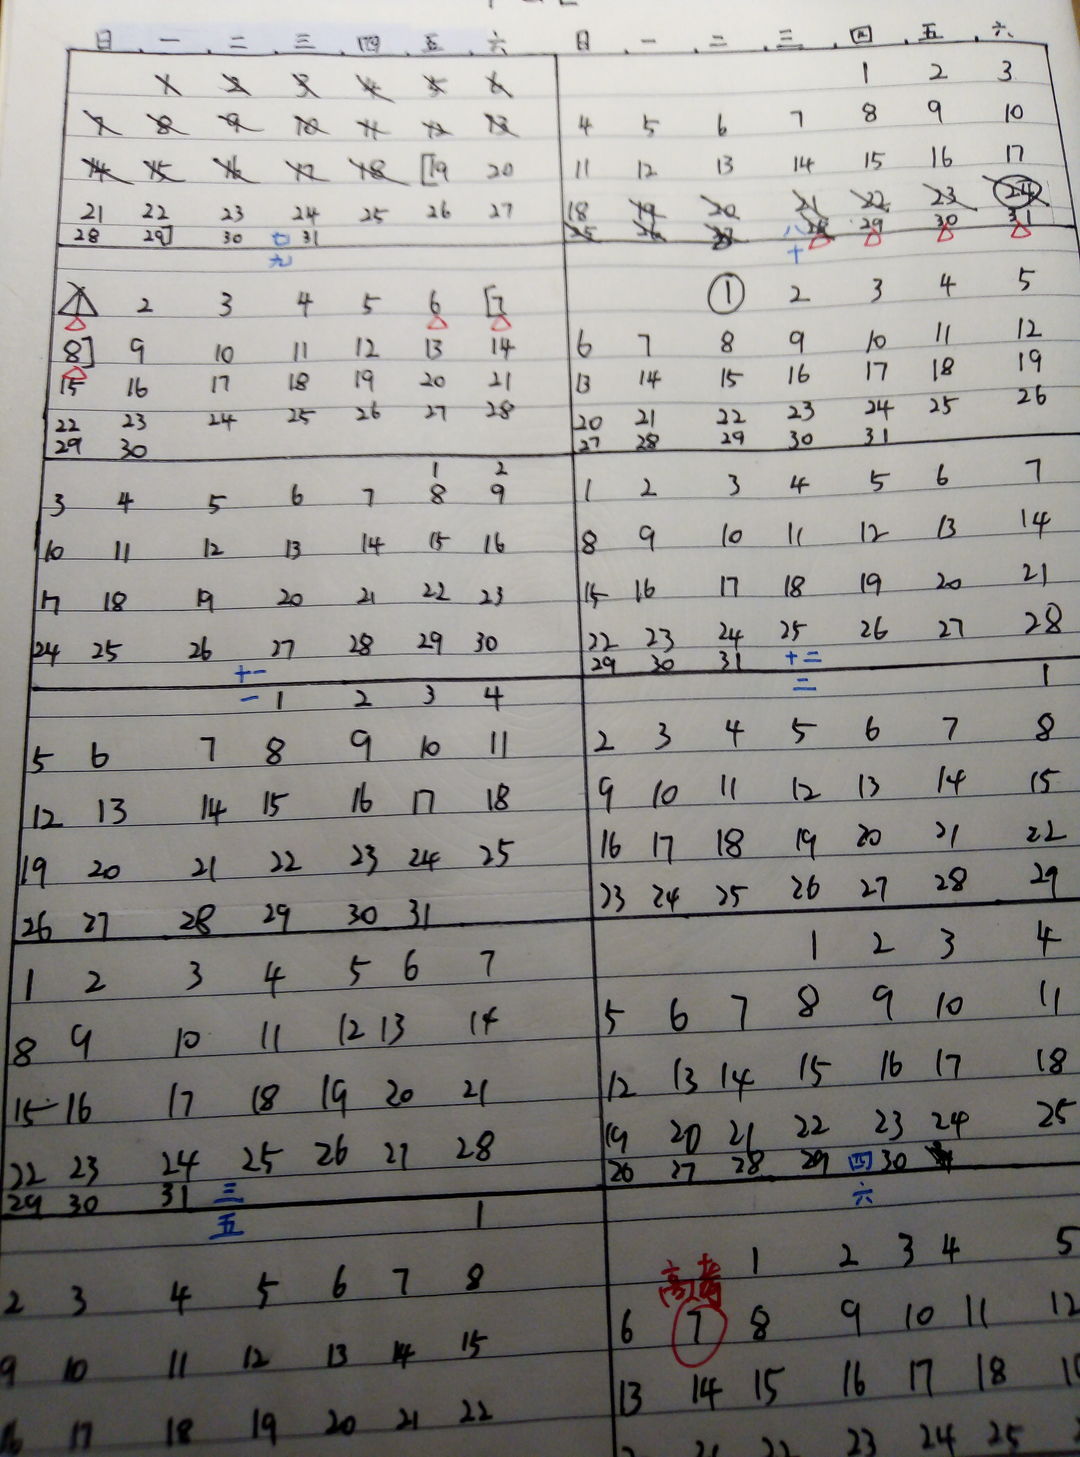 日 一 二 三 四 五 六
1 2 3 4 5 6
7 8 9 10 11 12 13
14 15 16 17 18 [19 20
21 22 23 24 25 26 27
28 29] 30 七 31
日 一 二 三 四 五 六
1 2 3
4 5 6 7 8 9 10
11 12 13 14 15 16 17
18 19 20 21 22 23 24
25 26 27 八 28 29 30 31
九
1 2 3 4 5 6 [7
8] 9 10 11 12 13 14
15 16 17 18 19 20 21
22 23 24 25 26 27 28
29 30
十
1 2 3 4 5
6 7 8 9 10 11 12
13 14 15 16 17 18 19
20 21 22 23 24 25 26
27 28 29 30 31
1 2
3 4 5 6 7 8 9
10 11 12 13 14 15 16
17 18 19 20 21 22 23
24 25 26 27 28 29 30
十一
1 2 3 4 5 6 7
8 9 10 11 12 13 14
15 16 17 18 19 20 21
22 23 24 25 26 27 28
29 30 31 十二
一 1 2 3 4
5 6 7 8 9 10 11
12 13 14 15 16 17 18
19 20 21 22 23 24 25
26 27 28 29 30 31
二 1
2 3 4 5 6 7 8
9 10 11 12 13 14 15
16 17 18 19 20 21 22
23 24 25 26 27 28 29
1 2 3 4 5 6 7
8 9 10 11 12 13 14
15 16 17 18 19 20 21
22 23 24 25 26 27 28
29 30 31 三
1 2 3 4
5 6 7 8 9 10 11
12 13 14 15 16 17 18
19 20 21 22 23 24 25
26 27 28 29 四 30
五 1
2 3 4 5 6 7 8
9 10 11 12 13 14 15
16 17 18 19 20 21 22
六
高考 1 2 3 4 5
6 7 8 9 10 11 12
13 14 15 16 17 18
21 22 23 24 25